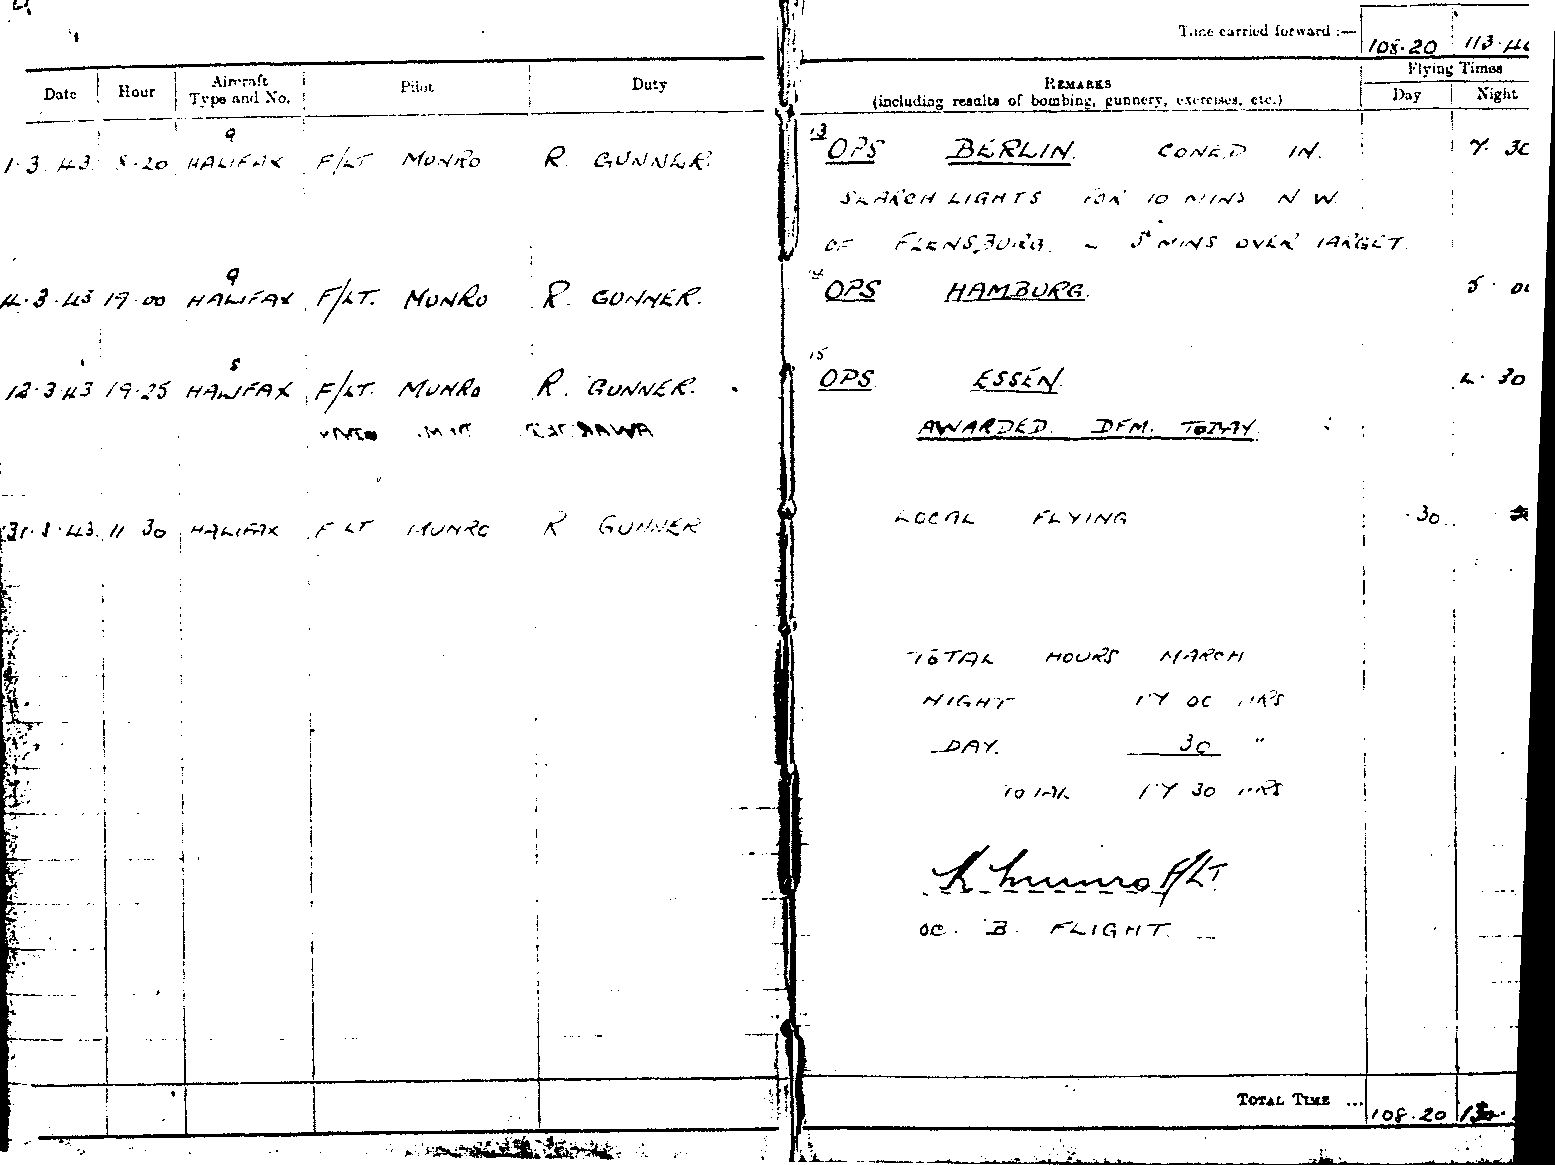 Time carried forward :— 108.20 113.40
Date Hour Aircraft Type and No. Pilot Duty REMARKS (including results of bombing, gunnery, exercises, etc.) Flying Times Day Night
1.3.43 8.20 HALIFAX 9 F/LT MUNRO R. GUNNER. 13 OPS BERLIN. CONED IN. 7.30
SEARCH LIGHTS FOR 10 MINS N W.
OF FLENSBURG. - 5 MINS OVER TARGET.
4.3.43 19.00 HALIFAX 9 F/LT. MUNRO R. GUNNER. 14 OPS HAMBURG. 5.00
12.3.43 19.25 HALIFAX S F/LT. MUNRO R. GUNNER. 15 OPS ESSEN. 4.30
AWARDED. DFM. TODAY.
31.3.43. 11 30 HALIFAX F LT MUNRO R GUNNER LOCAL FLYING .30
TOTAL HOURS MARCH
NIGHT 17 00 HRS
DAY. 30 "
TOTAL 17 30 HRS
Munro F/LT.
OC. B. FLIGHT.
TOTAL TIME ... 108.20